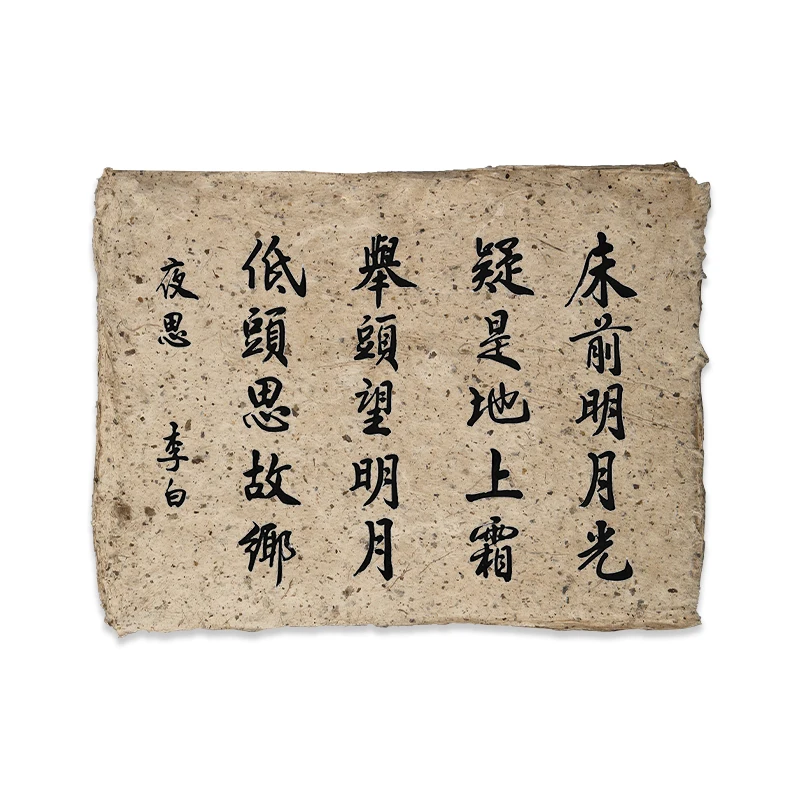 床前明月光
疑是地上霜
舉頭望明月
低頭思故鄉
夜思 李白